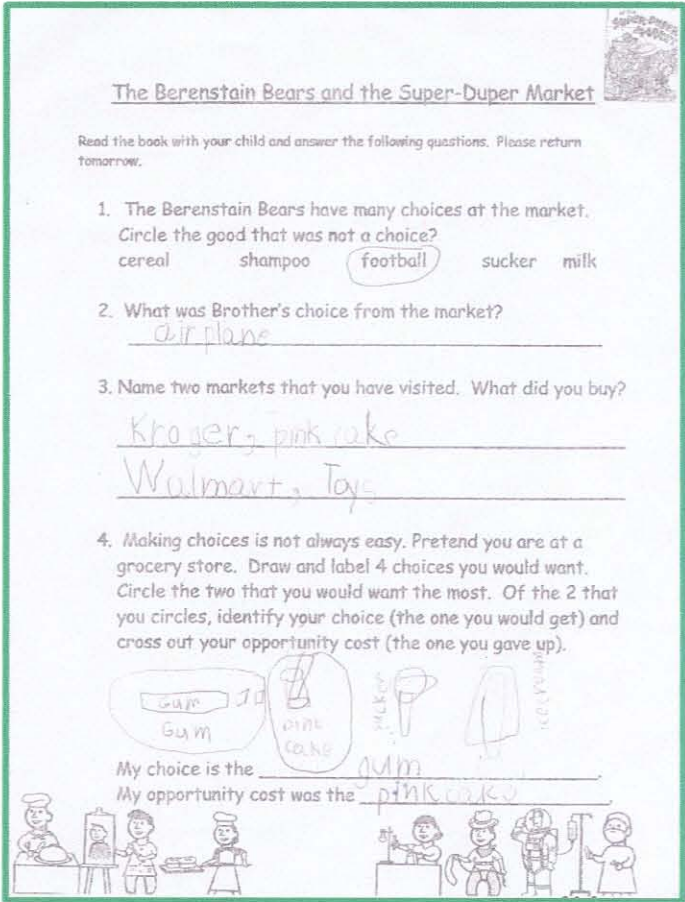 SUPER-DUPER
MARKET
The Berenstain Bears and the Super-Duper Market
Read the book with your child and answer the following questions. Please return
tomorrow.
1. The Berenstain Bears have many choices at the market.
Circle the good that was not a choice?
cereal shampoo football sucker milk
2. What was Brother's choice from the market?
airplane
3. Name two markets that you have visited. What did you buy?
Kroger, pink cake
Walmart, Toys
4. Making choices is not always easy. Pretend you are at a
grocery store. Draw and label 4 choices you would want.
Circle the two that you would want the most. Of the 2 that
you circles, identify your choice (the one you would get) and
cross out your opportunity cost (the one you gave up).
Gum
Gum
pink
cake
sucker
icecream
My choice is the gum.
My opportunity cost was the pink cake.